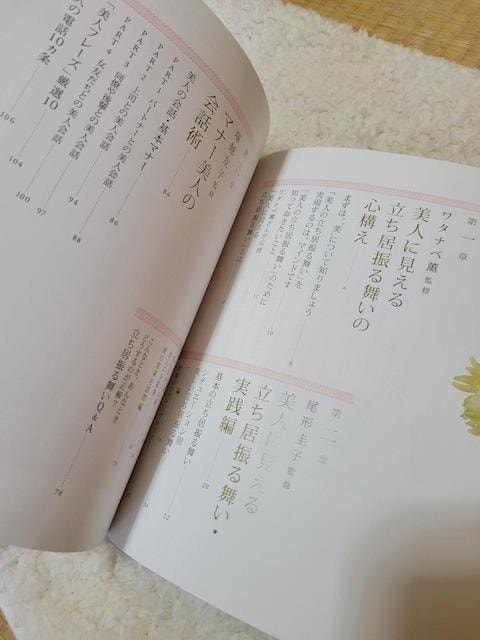 第一章
ワタナベ薫 監修
美人に見える
立ち居振る舞いの
心構え
まずは、「美」について知りましょう 6
「美人の立ち居振る舞い」を
実現するのは、マインドです 8
「美人の立ち居振る舞い」のために
知っておきたいこと 10
12
第二章
尾形圭子 監修
美人に見える
立ち居振る舞い・
実践編
基本の立ち居振る舞い 20
シチュエーション別
22
34
こんなとき、あんなとき
どうするのが正解?
立ち居振る舞いQ&A 74
監修
マナー美人の
会話術
美人の会話・基本マナー 84
PART1 パートナーとの美人会話 86
PART2 上司との美人会話 88
PART3 同僚や後輩との美人会話 94
PART4 女友だちとの美人会話 97
「美人フレーズ」厳選10 100
の電話10カ条 104
106